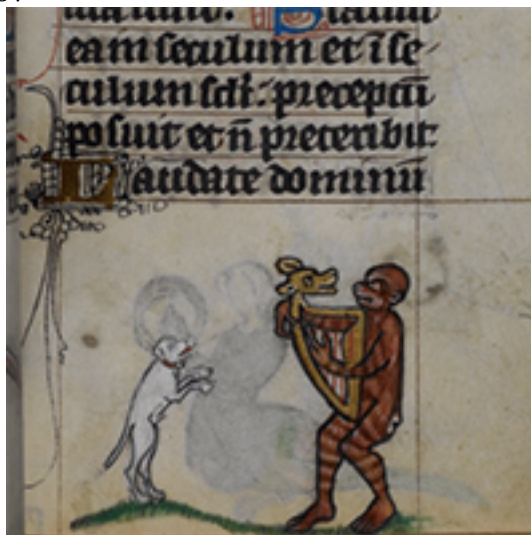 Statuit
ea in seculum et ī se-
culum scłi: preceptū
posuit et n̄ preteribit.
Laudate dominū